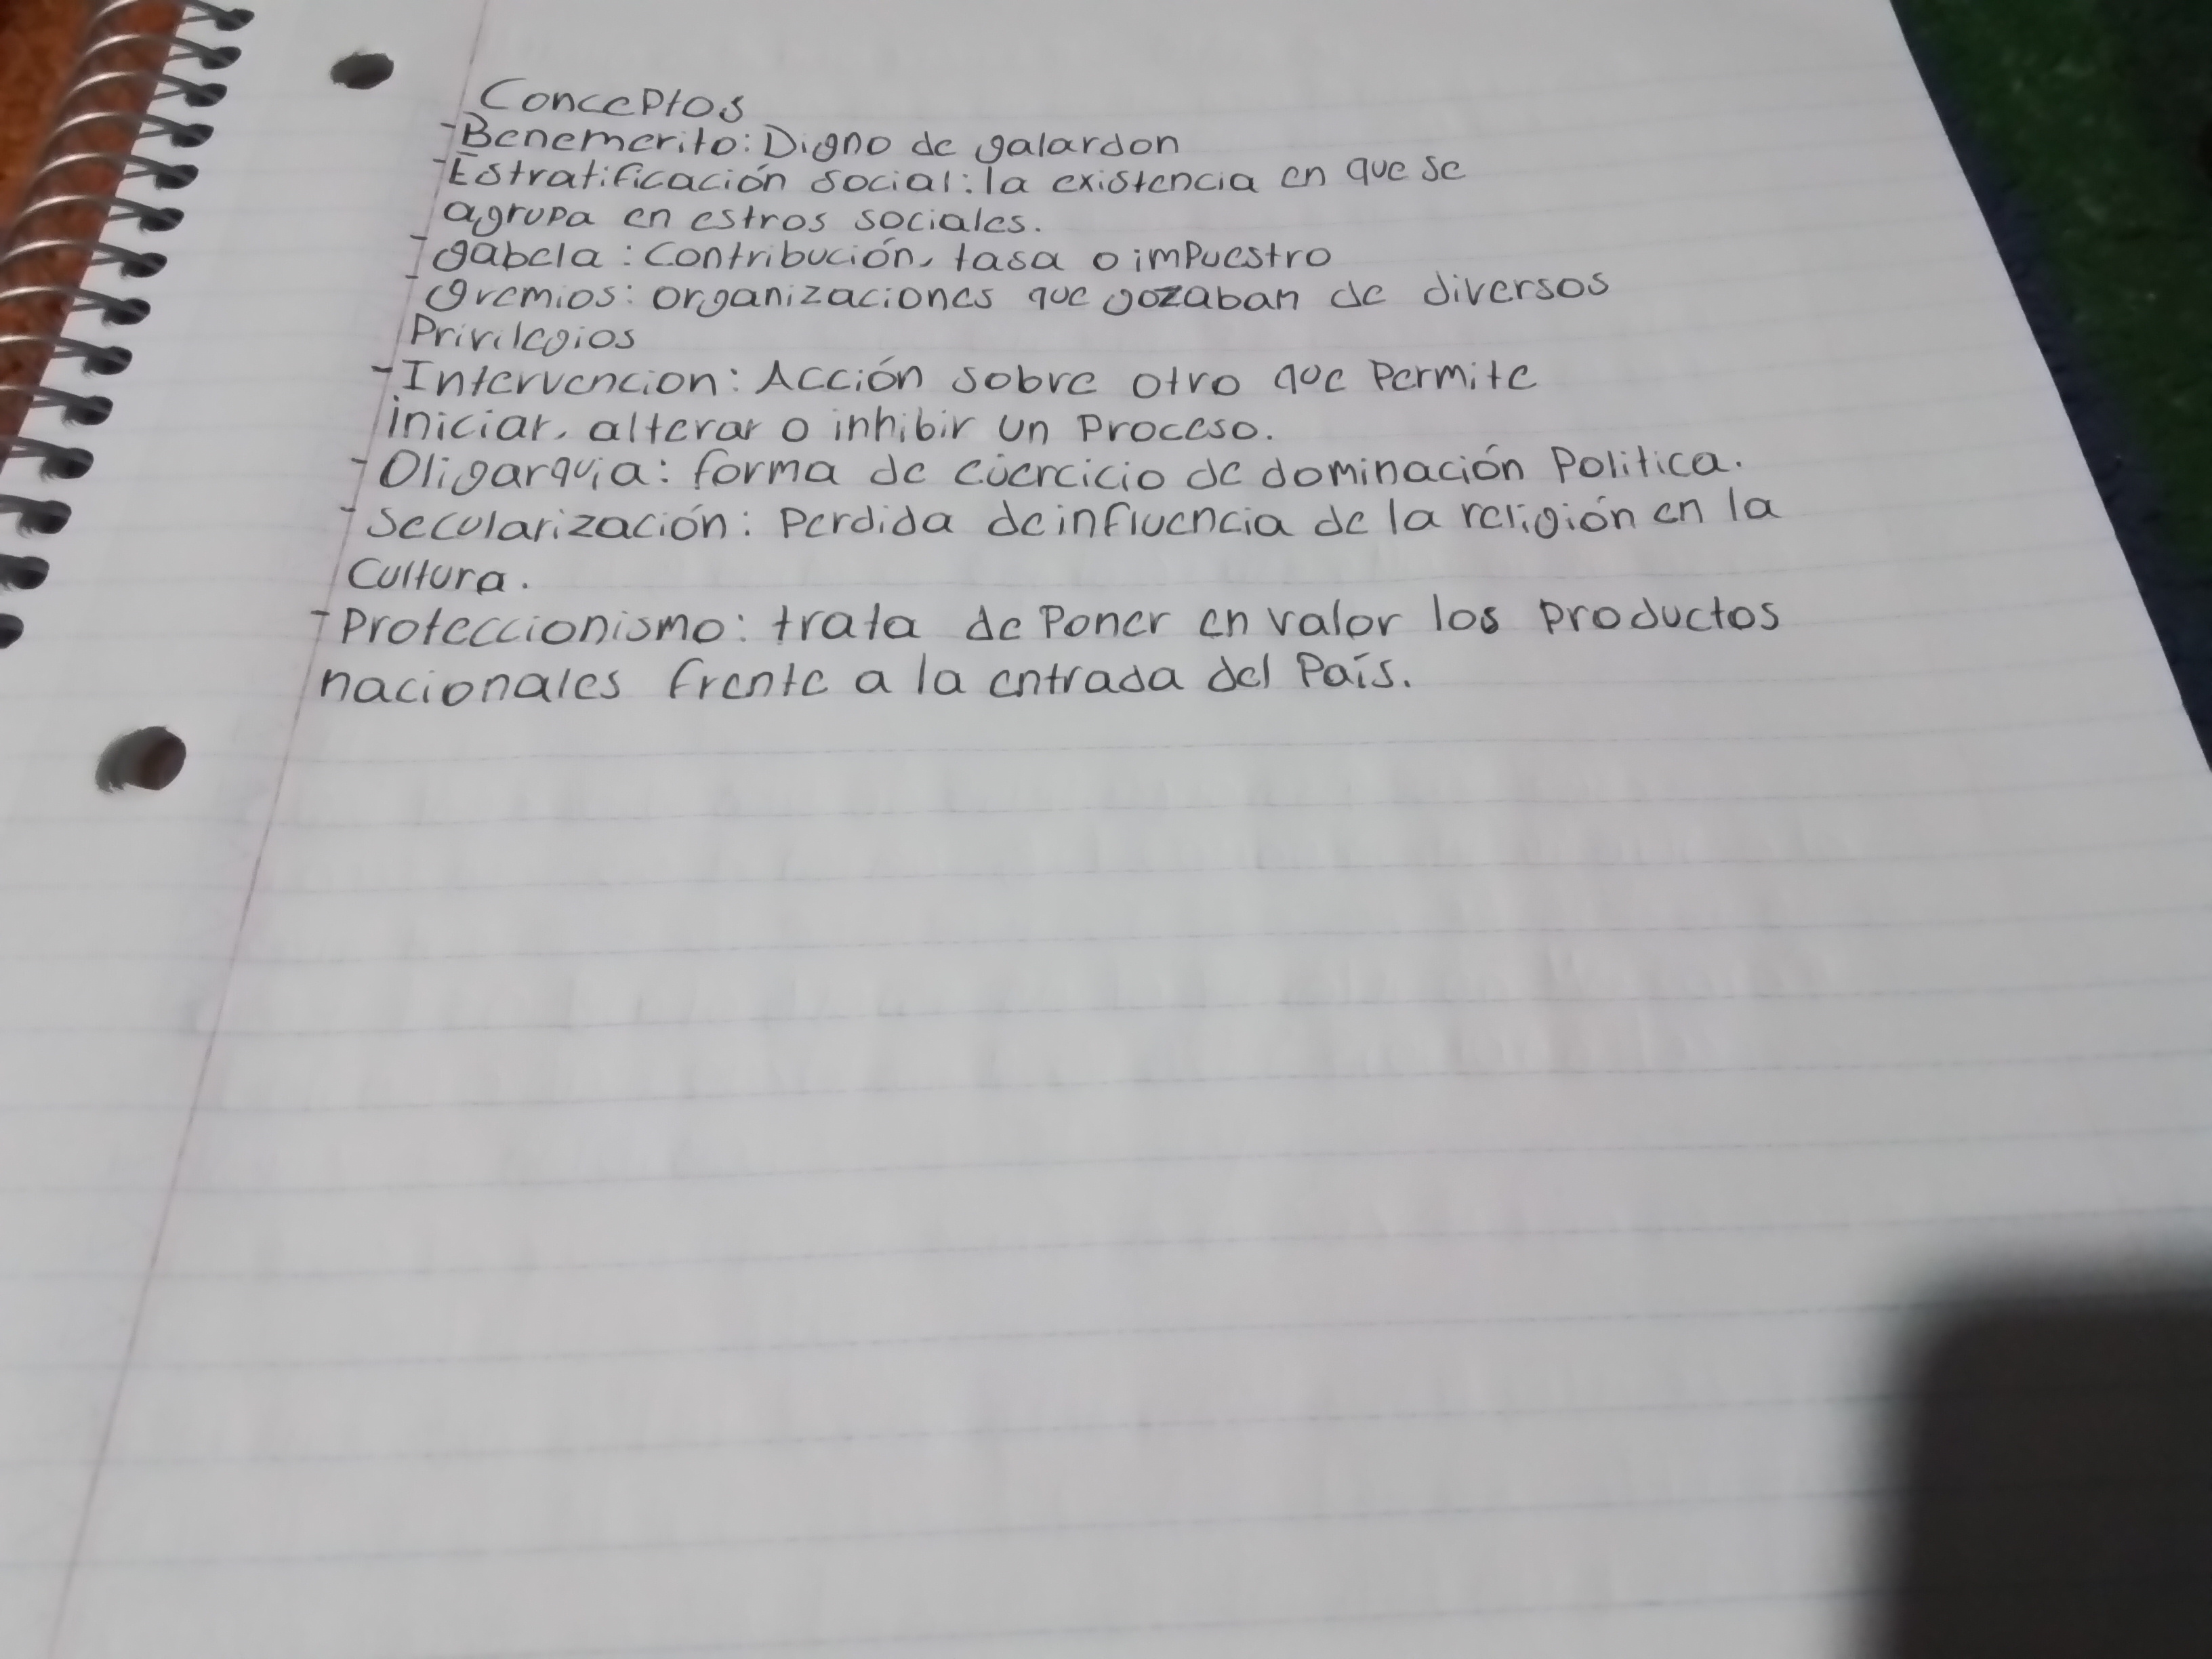 Conceptos
-Benemerito: Digno de galardon
-Estratificación social: la existencia en que se
agrupa en estros sociales.
-gabela: contribución, tasa o impuestro
-gremios: organizaciones que gozaban de diversos
Privilegios
-Intervencion: Acción sobre otro que Permite
iniciar, alterar o inhibir un Proceso.
-Oligarquia: forma de ejercicio de dominación Politica.
-Secularización: Perdida de influencia de la religión en la
Cultura.
-Proteccionismo: trata de Poner en valor los Productos
nacionales frente a la entrada del País.